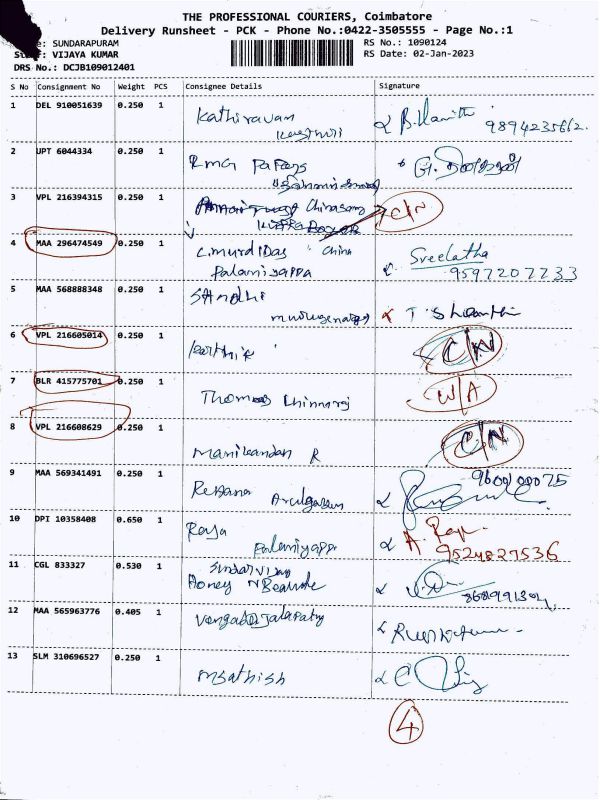 THE PROFESSIONAL COURIERS, Coimbatore
Delivery Runsheet - PCK - Phone No.:0422-3505555 - Page No.:1
SUNDARAPURAM
RS No.: 1090124
VIJAYA KUMAR
RS Date: 02-Jan-2023
DRS No.: DCJB109012401
S No Consignment No Weight PCS Consignee Details Signature
1 DEL 910051639 0.250 1 Kathiravan
9894235612
2 UPT 6044334 0.250 1 RMG Papers
3 VPL 216394315 0.250 1 C/N
4 MAA 296474549 0.250 1 L.murdiDas China Sreelatha
Palaniyappa 9597207233
5 MAA 568888348 0.250 1 SAndhi
T. Shanthi
6 VPL 216605014 0.250 1 Karthik C/N
7 BLR 415775701 0.250 1 Thomas Chinnaraj W/A
8 VPL 216608629 0.250 1 C/N
Manikandan R
9 MAA 569341491 0.250 1 9600100075
10 DPI 10358408 0.650 1 Raja A. Raja
Palaniyappa 9524827536
11 CGL 833327 0.530 1 Sundar Vijay
Honey
12 MAA 565963776 0.405 1
13 SLM 310696527 0.250 1 M Sathish
4